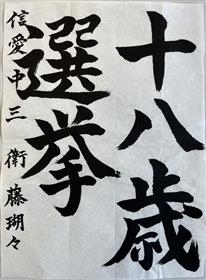 十八歳
選挙
信愛中三 衛藤瑚々